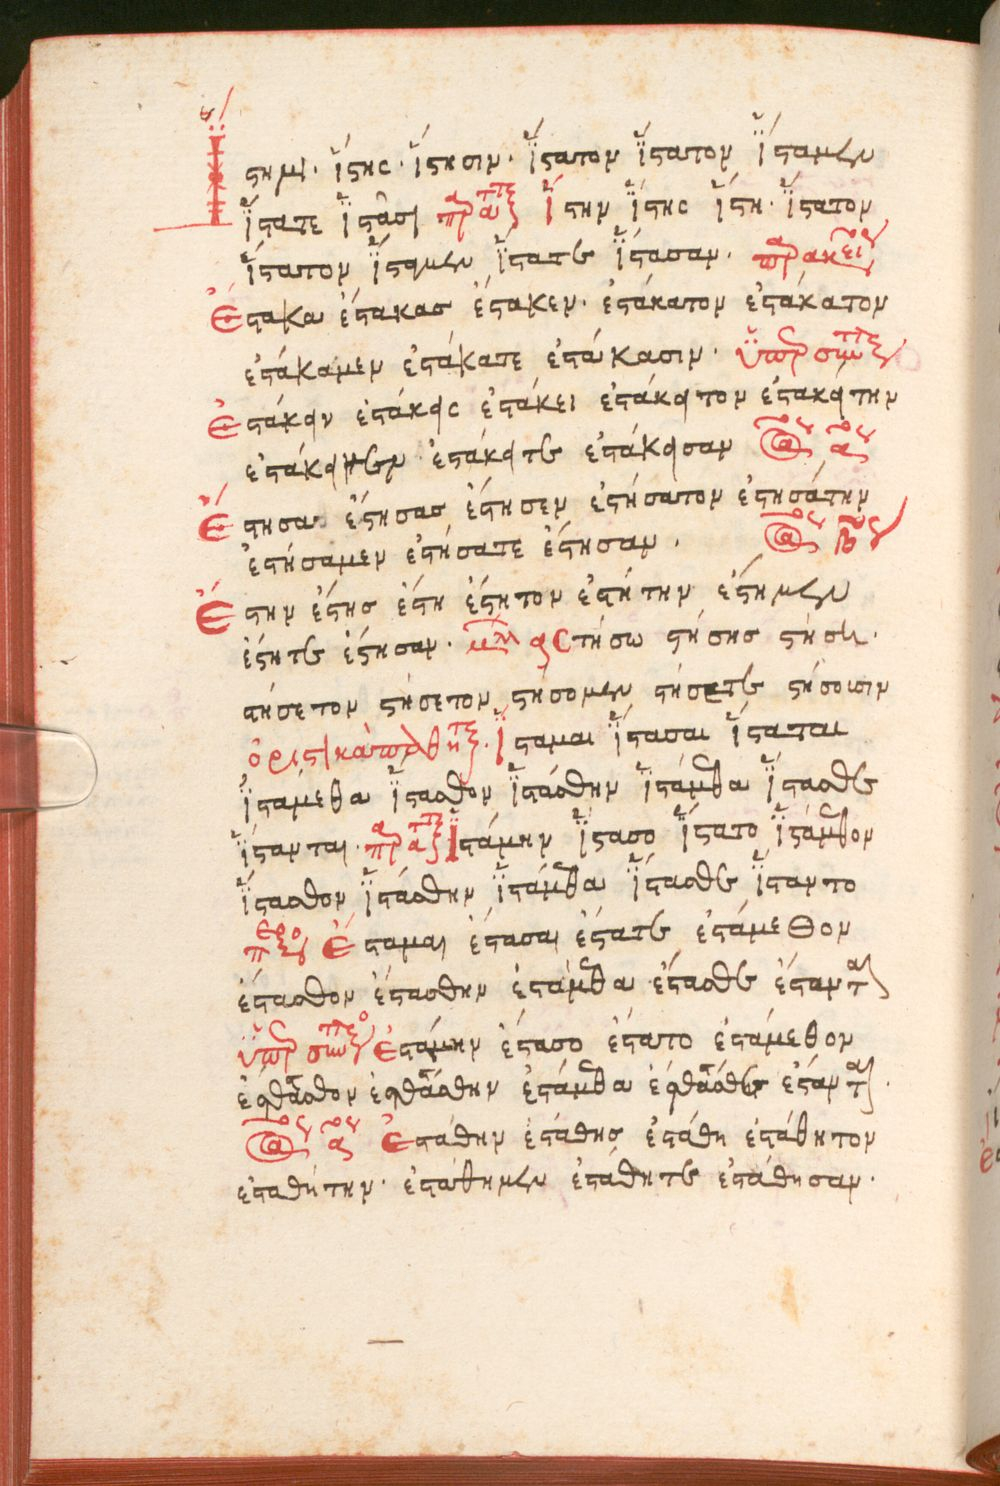 Ἵστημι· ἵστης· ἵστησιν· ἵστατον ἵστατον ἵσταμεν
ἵστατε ἱστᾶσι παρατατ ἵστην ἵστης ἵστη· ἵστατον
ἵστατον ἵσταμεν ἵστατε ἵστασαν· παρακει
Ἕστακα ἕστακας ἕστακεν· ἑστάκατον ἑστάκατον
ἑστάκαμεν ἑστάκατε ἑστάκασιν· ὑπερσυντε
Ἑστάκειν ἑστάκεις ἑστάκει ἑστάκειτον ἑστακείτην
ἑστάκειμεν ἑστάκειτε ἑστάκεισαν ἀορ αου
Ἔστησα ἔστησας ἔστησεν ἐστήσατον ἐστησάτην
ἐστήσαμεν ἐστήσατε ἔστησαν· ἀορ βου
Ἔστην ἔστης ἔστη ἔστητον ἐστήτην ἔστημεν
ἔστητε ἔστησαν· μελ α στήσω στήσης στήσει·
στήσετον στήσετον στήσομεν στήσετε στήσουσιν
ὁριστικὰ παθητ· ἵσταμαι ἵστασαι ἵσταται
ἱστάμεθα ἵστασθον ἱστάσθην ἱστάμεθα ἵστασθε
ἵστανται· παρατατ ἱστάμην ἵστασο ἵστατο ἱστάμεθον
ἵστασθον ἱστάσθην ἱστάμεθα ἵστασθε ἵσταντο
Ἕσταμαι ἕστασαι ἕστατε ἑστάμεθον
ἕστασθον ἕστασθην ἑστάμεθα ἕστασθε ἕστανται
ὑπερσυντε Ἑστάμην ἕστασο ἕστατο ἑστάμεθον
ἑστάμεθα ἕστανται·
ἀορ αου Ἐστάθην ἐστάθης ἐστάθη ἐστάθητον
ἐσταθήτην· ἐστάθημεν ἐστάθητε ἐστάθησαν·